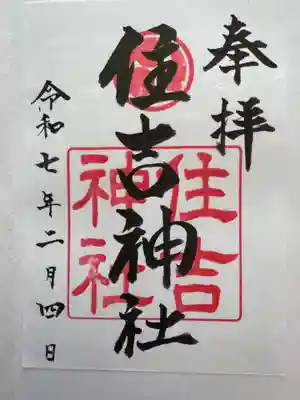 奉拝
住吉神社
住吉
神社
令和七年二月四日